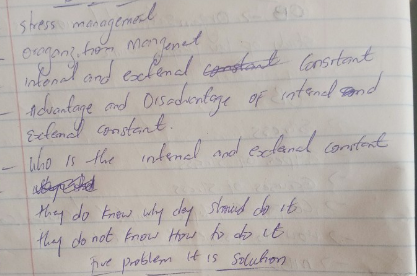 stress management
- Oraganization Mangenal
- intenal and extenal constant Consitant
- Advantage and Disadvantage of intenal and
Extenal constant.
- who is the intenal and extenal constant
they do know why dey should do it
they do not know How to do it.
five problem it is solution